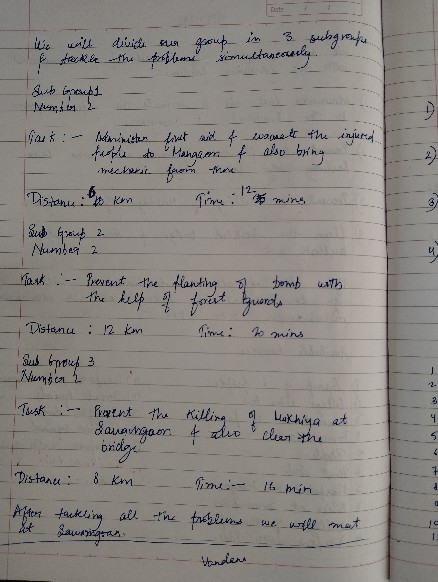 Date
We will divide our group in 3 subgroups
& tackle the problems simultaneously
Sub Group 1
Number 2
Task :- Administer first aid & evacuate the injured
people to Mangaon & also bring
mechanic from there
Distance : 6 km Time : 12 mins
Sub Group 2
Number 2
Task :- Prevent the planting of bomb with
the help of forest guards
Distance : 12 km Time : 20 mins
Sub Group 3
Number 2
Task :- Prevent the killing of Mukhiya at
& also clear the
bridge
Distance : 8 km Time :- 16 min
After tackling all the problems we will meet
at
1)
2)
3)
4)
1
2
3
4
5
6
7
8
9
10
11